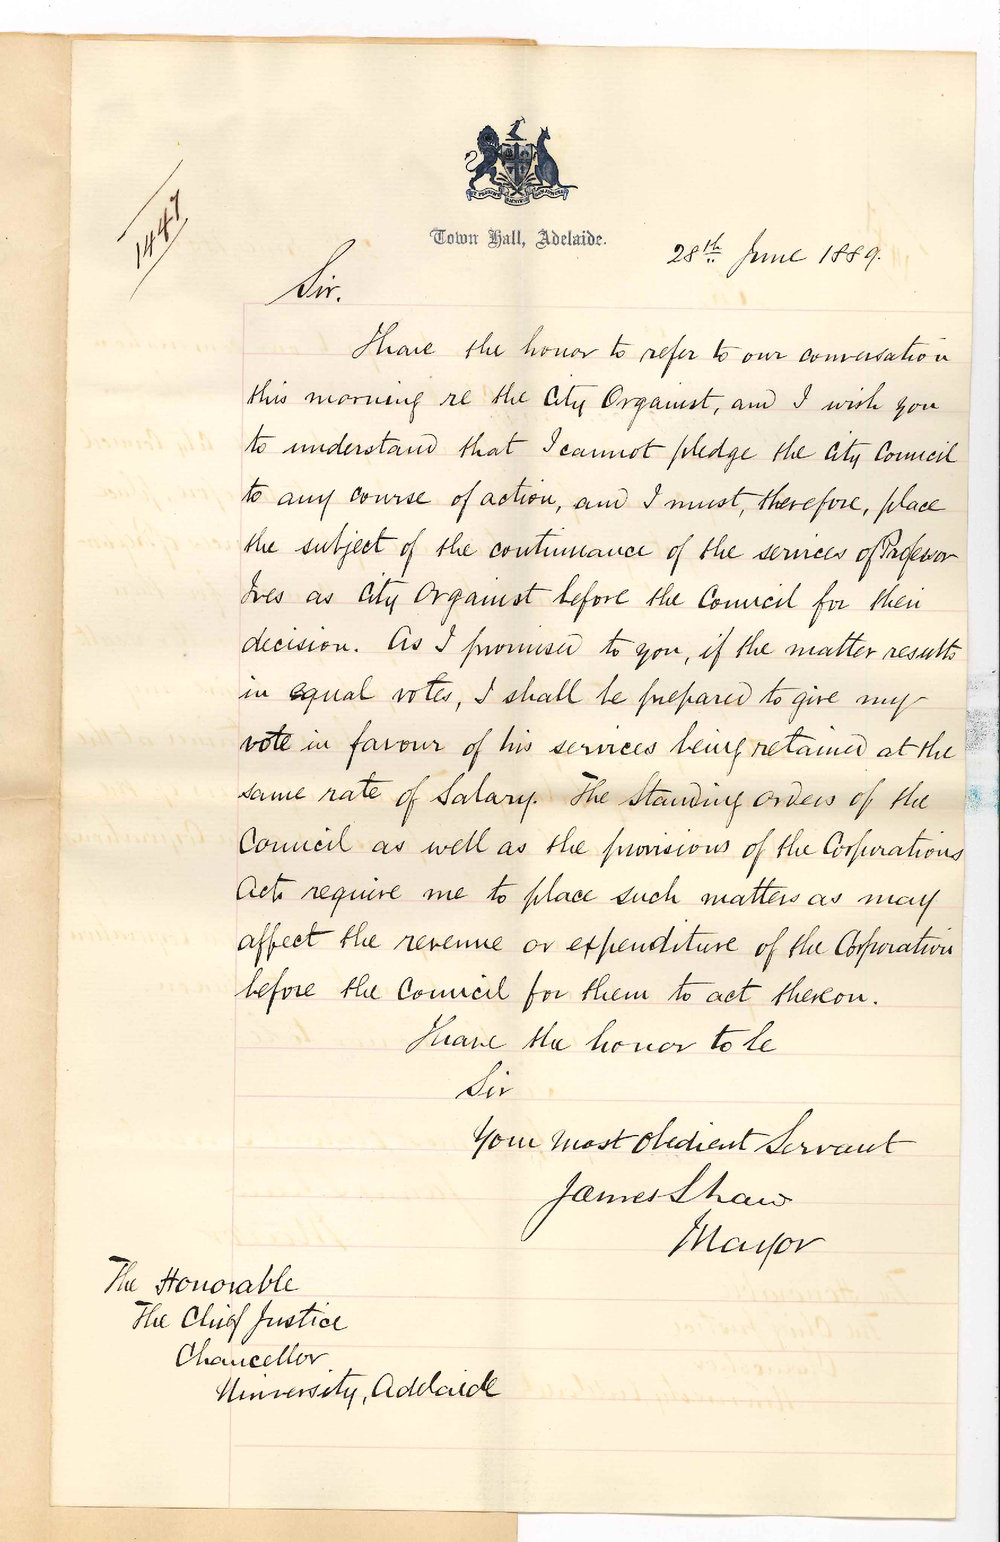 1447
Town Hall, Adelaide.
28th June 1889.
Sir.
I have the honor to refer to our conversation
this morning re the City Organist, and I wish you
to understand that I cannot pledge the City Council
to any course of action, and I must, therefore, place
the subject of the continuance of the services of Professor
Ives as City Organist before the Council for their
decision. As I promised to you, if the matter results
in equal votes, I shall be prepared to give my
vote in favour of his services being retained at the
same rate of Salary. The Standing Orders of the
Council as well as the provisions of the Corporations
Acts require me to place such matters as may
affect the revenue or expenditure of the Corporation
before the Council for them to act thereon.
I have the honor to be
Sir
Your Most Obedient Servant
James Shaw
Mayor
The Honorable
The Chief Justice
Chancellor
University, Adelaide